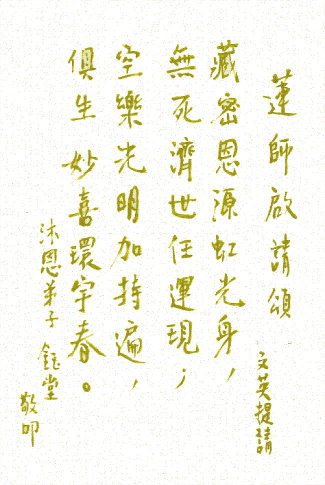 蓮師啟請頌
文英提請
藏密恩源虹光身，
無死濟世任運現；
空樂光明加持遍，
俱生妙喜環宇春。
沐恩弟子
鈺堂
敬叩